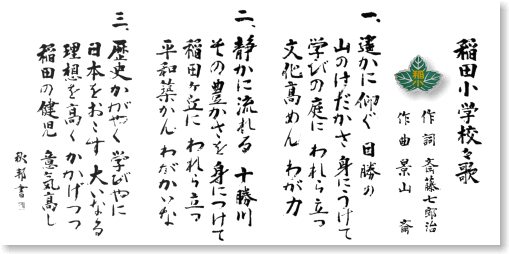 稲田小学校々歌
作詞 斎藤七郎治
作曲 景山 斎
一、遙かに仰ぐ 日勝の
山のけだかさ 身にうけて
学びの庭に われら立つ
文化高めん わが力
二、静かに流れる 十勝川
その豊かさを 身につけて
稲田ヶ丘に われら立つ
平和築かん わがかいな
三、歴史かがやく 学びやに
日本をおこす 大いなる
理想を高く かかげつつ
稲田の健児 意気高し